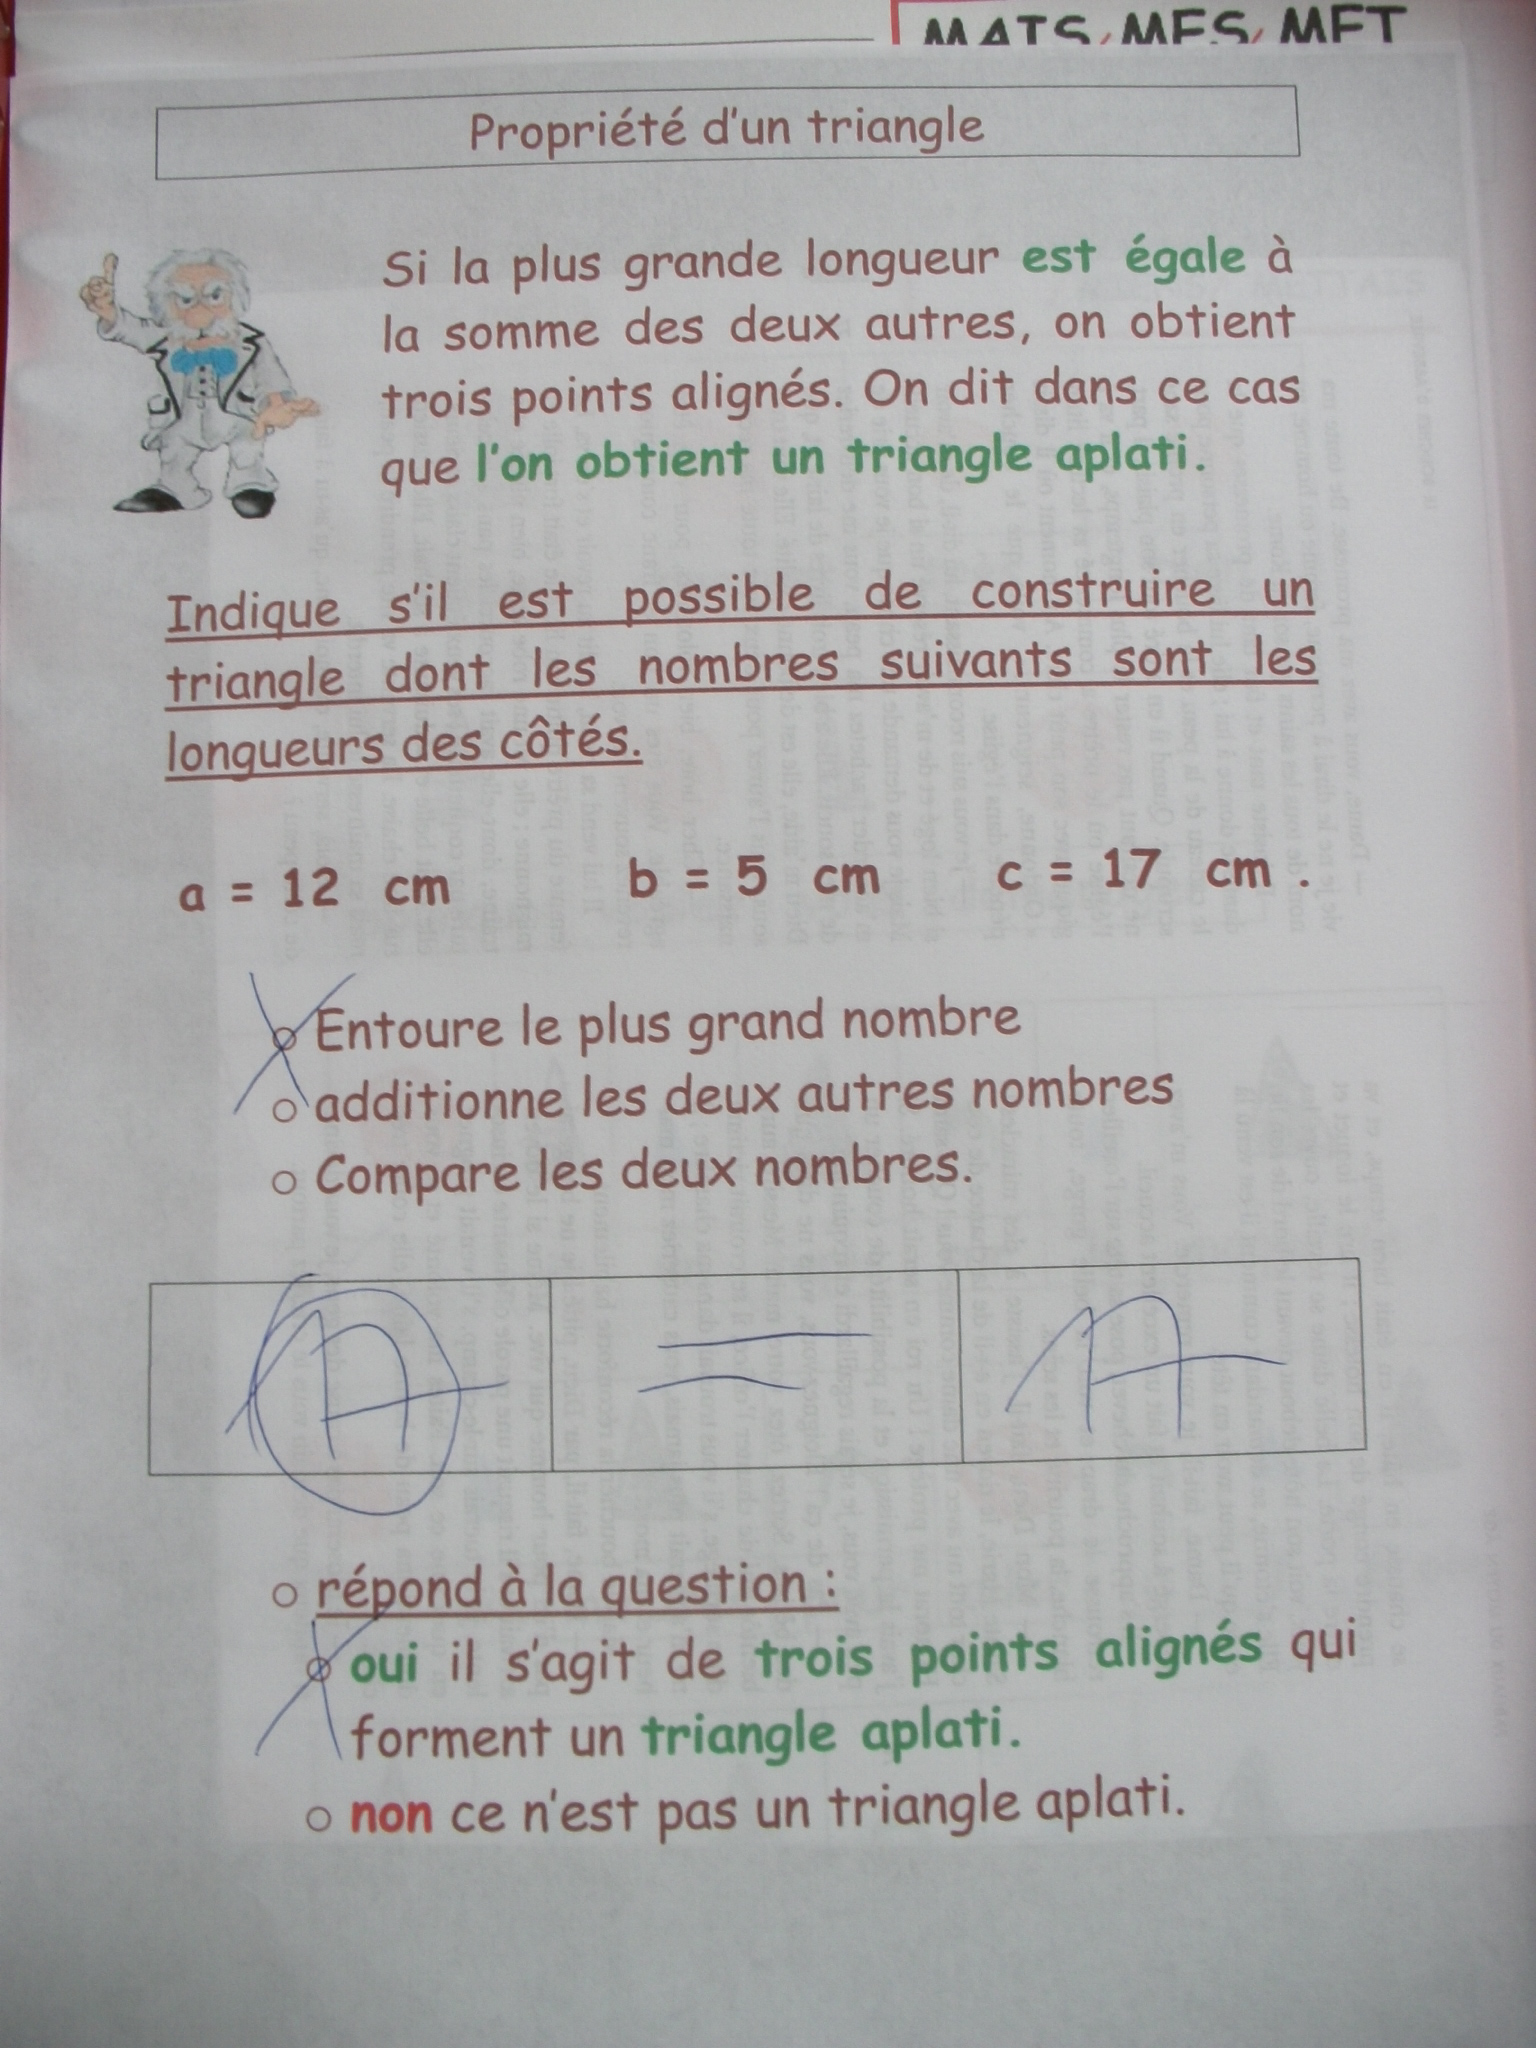 MATS, MES, MET
Propriété d'un triangle
Si la plus grande longueur est égale à
la somme des deux autres, on obtient
trois points alignés. On dit dans ce cas
que l'on obtient un triangle aplati.
Indique s'il est possible de construire un
triangle dont les nombres suivants sont les
longueurs des côtés.
a = 12 cm b = 5 cm c = 17 cm .
Entoure le plus grand nombre
additionne les deux autres nombres
Compare les deux nombres.
17 = 17
répond à la question :
oui il s'agit de trois points alignés qui
forment un triangle aplati.
non ce n'est pas un triangle aplati.